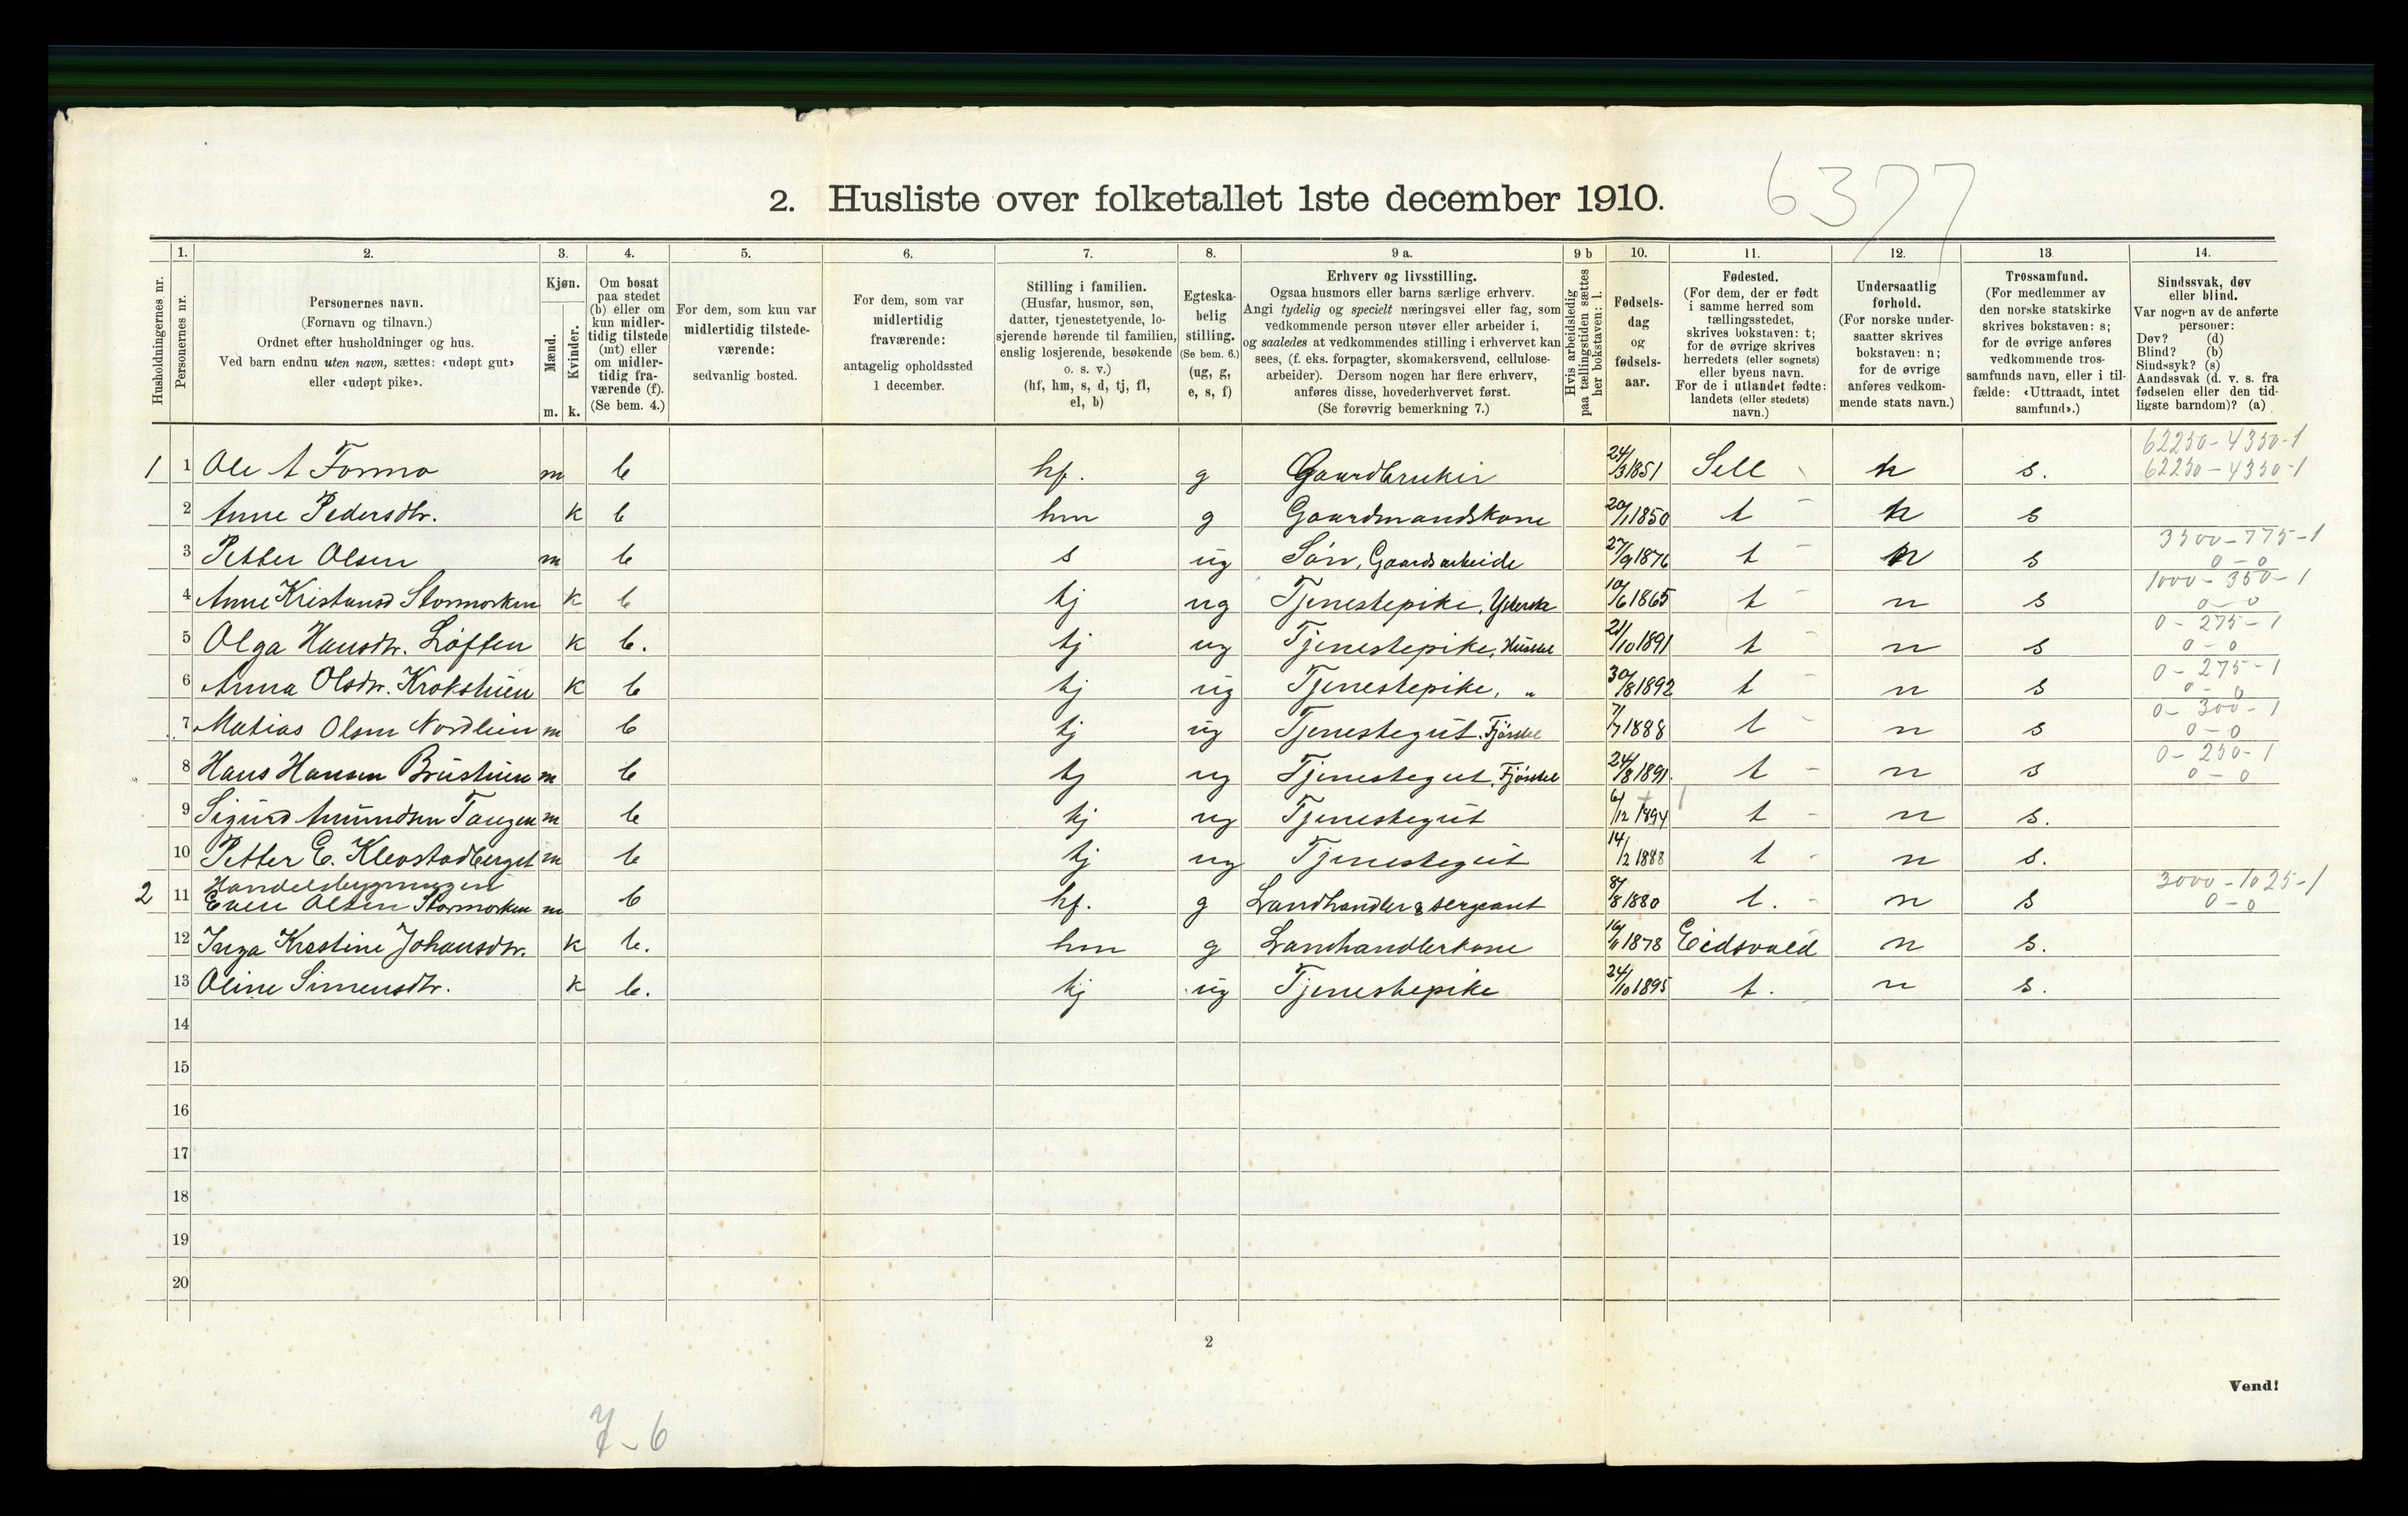 6377
2. Husliste over folketallet 1ste december 1910.
1. 2. 3. 4. 5. 6. 7. 8. 9 a. 9 b 10. 11. 12. 13 14.
Husholdningernes nr.
Personernes nr.
Personernes navn.
(Fornavn og tilnavn.)
Ordnet efter husholdninger og hus.
Ved barn endnu uten navn, sættes: «udøpt gut»
eller «udøpt pike».
Kjøn.
Mænd.
Kvinder.
m. k.
Om bosat
paa stedet
(b) eller om
kun midler-
tidig tilstede
(mt) eller
om midler-
tidig fra-
værende (f).
(Se bem. 4.)
For dem, som kun var
midlertidig tilstede-
værende:
sedvanlig bosted.
For dem, som var
midlertidig
fraværende:
antagelig opholdssted
1 december.
Stilling i familien.
(Husfar, husmor, søn,
datter, tjenestetyende, lo-
sjerende hørende til familien,
enslig losjerende, besøkende
o. s. v.)
(hf, hm, s, d, tj, fl,
el, b)
Egteska-
belig
stilling.
(Se bem. 6.)
(ug, g,
e, s, f)
Erhverv og livsstilling.
Ogsaa husmors eller barns særlige erhverv.
Angi tydelig og specielt næringsvei eller fag, som
vedkommende person utøver eller arbeider i,
og saaledes at vedkommendes stilling i erhvervet kan
sees, (f. eks. forpagter, skomakersvend, cellulose-
arbeider). Dersom nogen har flere erhverv,
anføres disse, hovederhvervet først.
(Se forøvrig bemerkning 7.)
Hvis arbeidsledig
paa tællingstiden sættes
her bokstaven: l.
Fødsels-
dag
og
fødsels-
aar.
Fødested.
(For dem, der er født
i samme herred som
tællingsstedet,
skrives bokstaven: t;
for de øvrige skrives
herredets (eller sognets)
eller byens navn.
For de i utlandet fødte:
landets (eller stedets)
navn.)
Undersaatlig
forhold.
(For norske under-
saatter skrives
bokstaven: n;
for de øvrige
anføres vedkom-
mende stats navn.)
Trossamfund.
(For medlemmer av
den norske statskirke
skrives bokstaven: s;
for de øvrige anføres
vedkommende tros-
samfunds navn, eller i til-
fælde: «Uttraadt, intet
samfund».)
Sindssvak, døv
eller blind.
Var nogen av de anførte
personer:
Døv? (d)
Blind? (b)
Sindssyk? (s)
Aandssvak (d. v. s. fra
fødselen eller den tid-
ligste barndom)? (a)
62250-4350-1
1 1 Ole A Formo m b hf. g Gaardbruker 24/3 1851 Sell n s. 62250-4350-1
2 Anne Pedersdtr. k b hm g Gaardmandskone 20/1 1850 t n s
3500-775-1
3 Petter Olsen m b s ug Søn, Gaardsarbeide 27/9 1876 t n s 0-0
1000-350-1
4 Anne Kristansd Stormorken k b tj ug Tjenestepike, 10/6 1865 t n s 0-0
0-275-1
5 Olga Hansdtr. Løften k b. tj ug Tjenestepike, 21/10 1891 t n s 0-0
0-275-1
6 Anna Olsdtr. Krokstuen k b tj ug Tjenestepike, „ 30/8 1892 t n s 0-0
0-300-1
7 Matias Olsen Nordlien m b tj ug Tjenestegut. 7/7 1888 t n s 0-0
0-250-1
8 Hans Hansen Brustuen m b tj ug Tjenestegut, 24/8 1891. t n s 0-0
9 Sigurd Amundsen Tangen m b tj ug Tjenestegut 6/12 1894 t n s.
10 Petter E. Klevstadberget m b tj ug Tjenestegut 14/2 1888 t n s.
Handelsbygningen
3000-1025-1
2 11 Even Olsen Stormorken m b hf. g Landhandler & sergeant 8/8 1880 t. n s 0-0
12 Inga Kristine Johansdtr. k b. hm g Landhandlerkone 16/11 1878 Eidsvold n s.
13 Oline Simensdtr. k b. tj ug Tjenestepike 24/10 1895 t. n s.
14
15
16
17
18
19
20
2
Vend!
7-6